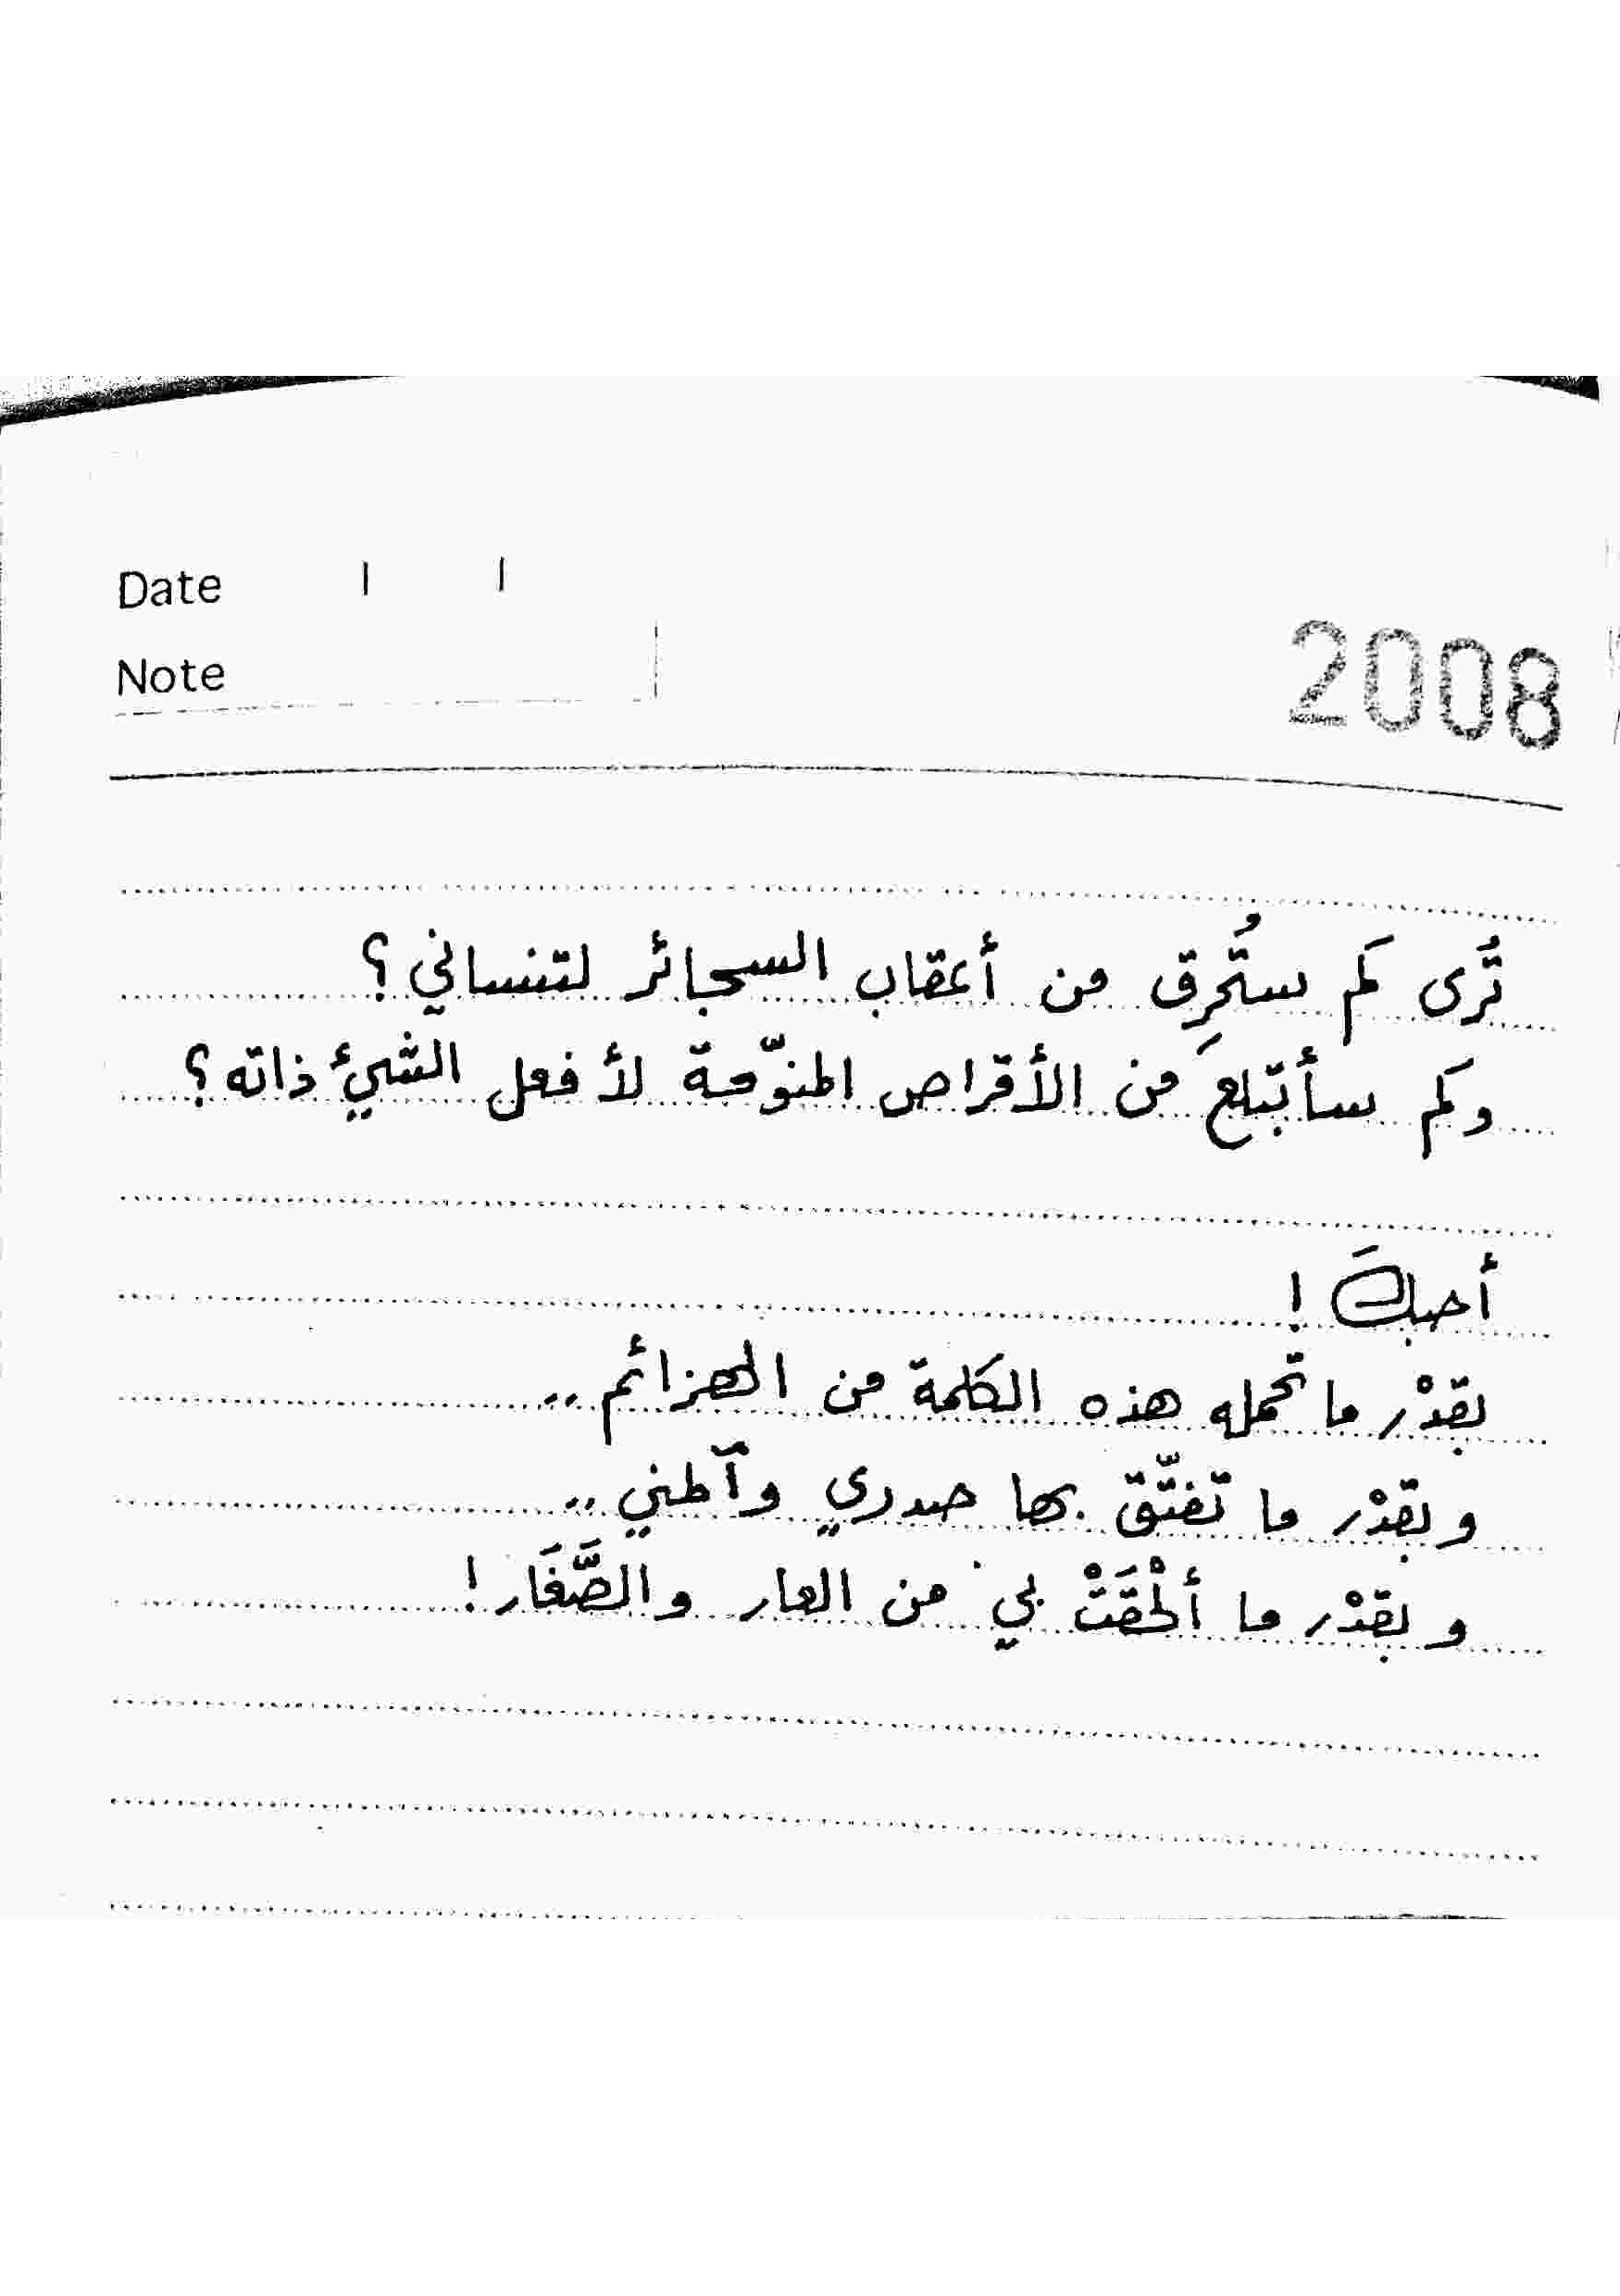 Date / /
Note
2008
تُرى كم ستُحرِق من أعقاب السجائر لتنساني؟
وكم سأبتلعَ من الأقراص المنوّمة لأفعل الشيئ ذاته؟
أحبكَ!
بقدْر ما تحمله هذه الكلمة من الهزائم..
وبقدْر ما تفتّق بها صدري وآلمني..
وبقدْر ما ألْحَقَتْ بي من العار والصَّغَار!